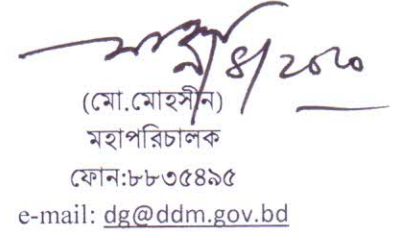 (মো.মোহসীন)
মহাপরিচালক
ফোন:৮৮৩৫৪৯৫
e-mail: dg@ddm.gov.bd